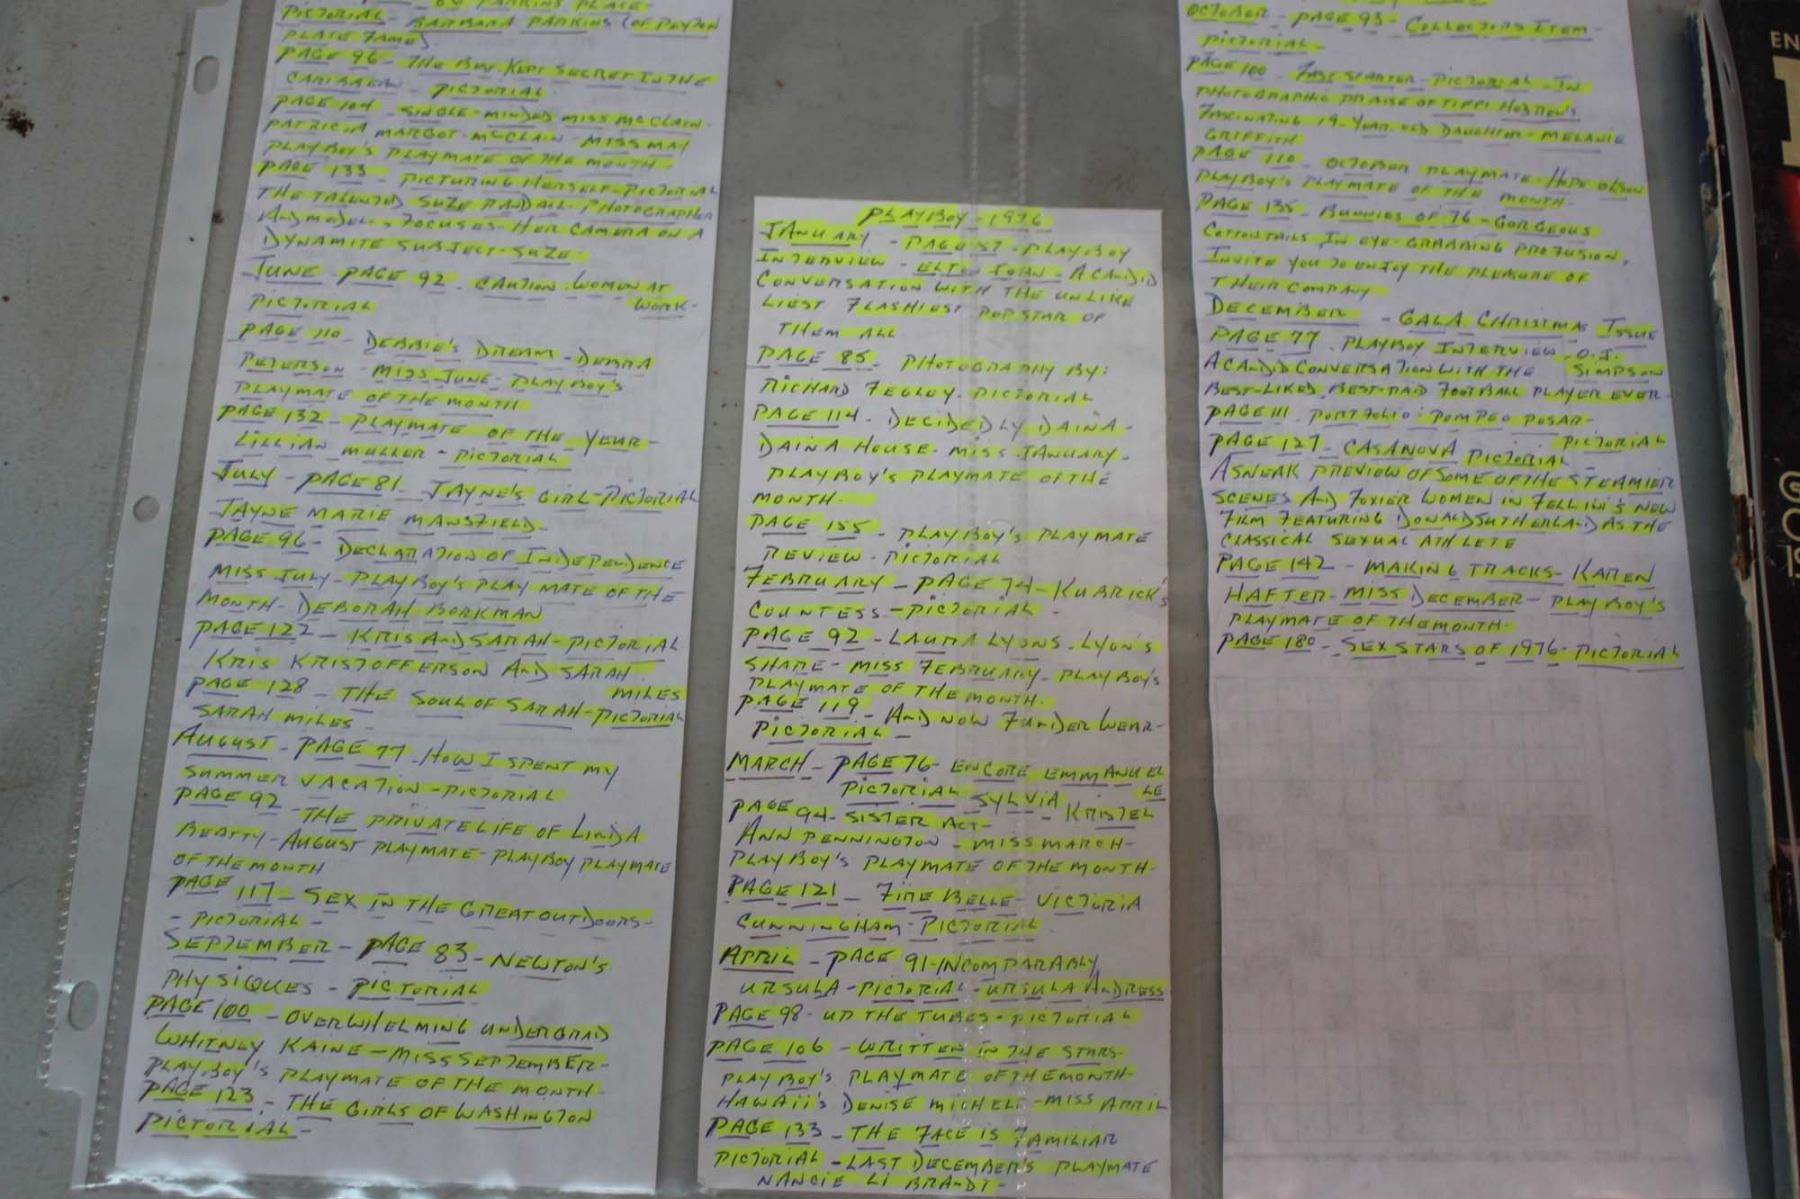 PICTORIAL - BARBARA PARKINS (OF PEYTON
PLACE FAME)
PAGE 96 - THE BEST KEPT SECRET IN THE
CARIBBEAN - PICTORIAL
PAGE 104 - SINGLE-MINDED MISS MCCLAIN -
PATRICIA MARGOT MCCLAIN - MISS MAY
PLAYBOY'S PLAYMATE OF THE MONTH -
PAGE 133 - PICTURING HERSELF - PICTORIAL
THE TALENTED SUZE RANDALL - PHOTOGRAPHER
AND MODEL - FOCUSES HER CAMERA ON A
DYNAMITE SUBJECT - SUZE -
JUNE - PAGE 92 - CAUTION: WOMEN AT
WORK -
PICTORIAL
PAGE 110 - DEBBIE'S DREAM - DEBRA
PETERSON - MISS JUNE - PLAYBOY'S
PLAYMATE OF THE MONTH
PAGE 132 - PLAYMATE OF THE YEAR -
LILLIAN MULLER - PICTORIAL
JULY - PAGE 81 - JAYNE'S GIRL - PICTORIAL
JAYNE MARIE MANSFIELD -
PAGE 96 - DECLARATION OF INDEPENDENCE
MISS JULY - PLAYBOY'S PLAYMATE OF THE
MONTH - DEBORAH BORKMAN
PAGE 122 - KRIS AND SARAH - PICTORIAL
KRIS KRISTOFFERSON AND SARAH
MILES
PAGE 128 - THE SOUL OF SARAH - PICTORIAL
SARAH MILES -
AUGUST - PAGE 77 - HOW I SPENT MY
SUMMER VACATION - PICTORIAL
PAGE 92 - THE PRIVATE LIFE OF LINDA
BEATTY - AUGUST PLAYMATE - PLAYBOY PLAYMATE
OF THE MONTH
PAGE 117 - SEX IN THE GREAT OUTDOORS -
- PICTORIAL -
SEPTEMBER - PAGE 83 - NEWTON'S
PHYSIQUES - PICTORIAL
PAGE 100 - OVERWHELMING UNDERGRAD
WHITNEY KAINE - MISS SEPTEMBER -
PLAYBOY'S PLAYMATE OF THE MONTH -
PAGE 123 - THE GIRLS OF WASHINGTON
PICTORIAL -
PLAYBOY - 1976
JANUARY - PAGE 57 - PLAYBOY
INTERVIEW - ELTON JOHN - A CANDID
CONVERSATION WITH THE UNLIKE
LIEST FLASHIEST POP STAR OF
THEM ALL
PAGE 85 - PHOTOGRAPHY BY:
RICHARD FEGLEY - PICTORIAL
PAGE 114 - DECIDEDLY DAINA -
DAINA HOUSE - MISS JANUARY -
PLAYBOY'S PLAYMATE OF THE
MONTH -
PAGE 155 - PLAYBOY'S PLAYMATE
REVIEW - PICTORIAL
FEBRUARY - PAGE 74 - KUBRICK'S
COUNTESS - PICTORIAL -
PAGE 92 - LAURA LYONS - LYON'S
SHARE - MISS FEBRUARY - PLAYBOY'S
PLAYMATE OF THE MONTH -
PAGE 119 - AND NOW FUNDERWEAR -
PICTORIAL -
MARCH - PAGE 76 - ENCORE EMMANUEL
LE
PICTORIAL SYLVIA KRISTEL
PAGE 94 - SISTER ACT -
ANN PENNINGTON - MISS MARCH -
PLAYBOY'S PLAYMATE OF THE MONTH -
PAGE 121 - FIRE BELLE - VICTORIA
CUNNINGHAM - PICTORIAL
APRIL - PAGE 91 - INCOMPARABLY
URSULA - PICTORIAL - URSULA ANDRESS
PAGE 98 - UP THE TUBES - PICTORIAL
PAGE 106 - WRITTEN IN THE STARS -
PLAYBOY'S PLAYMATE OF THE MONTH -
HAWAII'S DENISE MICHELE - MISS APRIL
PAGE 133 - THE FACE IS FAMILIAR
PICTORIAL - LAST DECEMBER'S PLAYMATE
NANCIE LI BRANDI -
OCTOBER - PAGE 93 - COLLECTORS ITEM -
PICTORIAL -
PAGE 100 - FAST STARTER - PICTORIAL - IN
PHOTOGRAPHIC PRAISE OF TIPPI HEDREN'S
FASCINATING 19-YEAR-OLD DAUGHTER - MELANIE
GRIFFITH
PAGE 110 - OCTOBER PLAYMATE - HOPE OLSON
PLAYBOY'S PLAYMATE OF THE MONTH -
PAGE 135 - BUNNIES OF 76 - GORGEOUS
COTTONTAILS IN EYE-GRABBING PROFUSION,
INVITE YOU TO ENJOY THE PLEASURE OF
THEIR COMPANY
DECEMBER - GALA CHRISTMAS ISSUE
PAGE 77 - PLAYBOY INTERVIEW - O.J.
SIMPSON
A CANDID CONVERSATION WITH THE
BEST-LIKED, BEST-PAID FOOTBALL PLAYER EVER -
PAGE 111 - PORTFOLIO: POMPEO POSAR -
PICTORIAL
PAGE 127 - CASANOVA PICTORIAL -
A SNEAK PREVIEW OF SOME OF THE STEAMIER
SCENES AND FOXIER WOMEN IN FELLINI'S NEW
FILM FEATURING DONALD SUTHERLAND AS THE
CLASSICAL SEXUAL ATHLETE
PAGE 142 - MAKING TRACKS - KAREN
HAFTER - MISS DECEMBER - PLAYBOY'S
PLAYMATE OF THE MONTH -
PAGE 180 - SEX STARS OF 1976 - PICTORIAL
EN